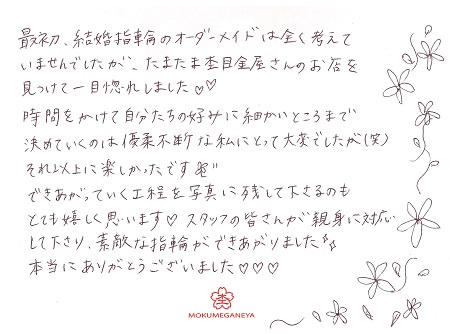 最初、結婚指輪のオーダーメイドは全く考えて
いませんでしたが、たまたま杢目金屋さんのお店を
見つけて一目惚れしました♡♡
時間をかけて自分たちの好みに細かいところまで
決めていくのは優柔不断な私にとって大変でしたが(笑)
それ以上に楽しかったです
できあがっていく工程を写真に残して下さるのも
とても嬉しく思います♡スタッフの皆さんが親身に対応
して下さり、素敵な指輪ができあがりました
本当にありがとうございました♡♡♡
杢
MOKUMEGANEYA